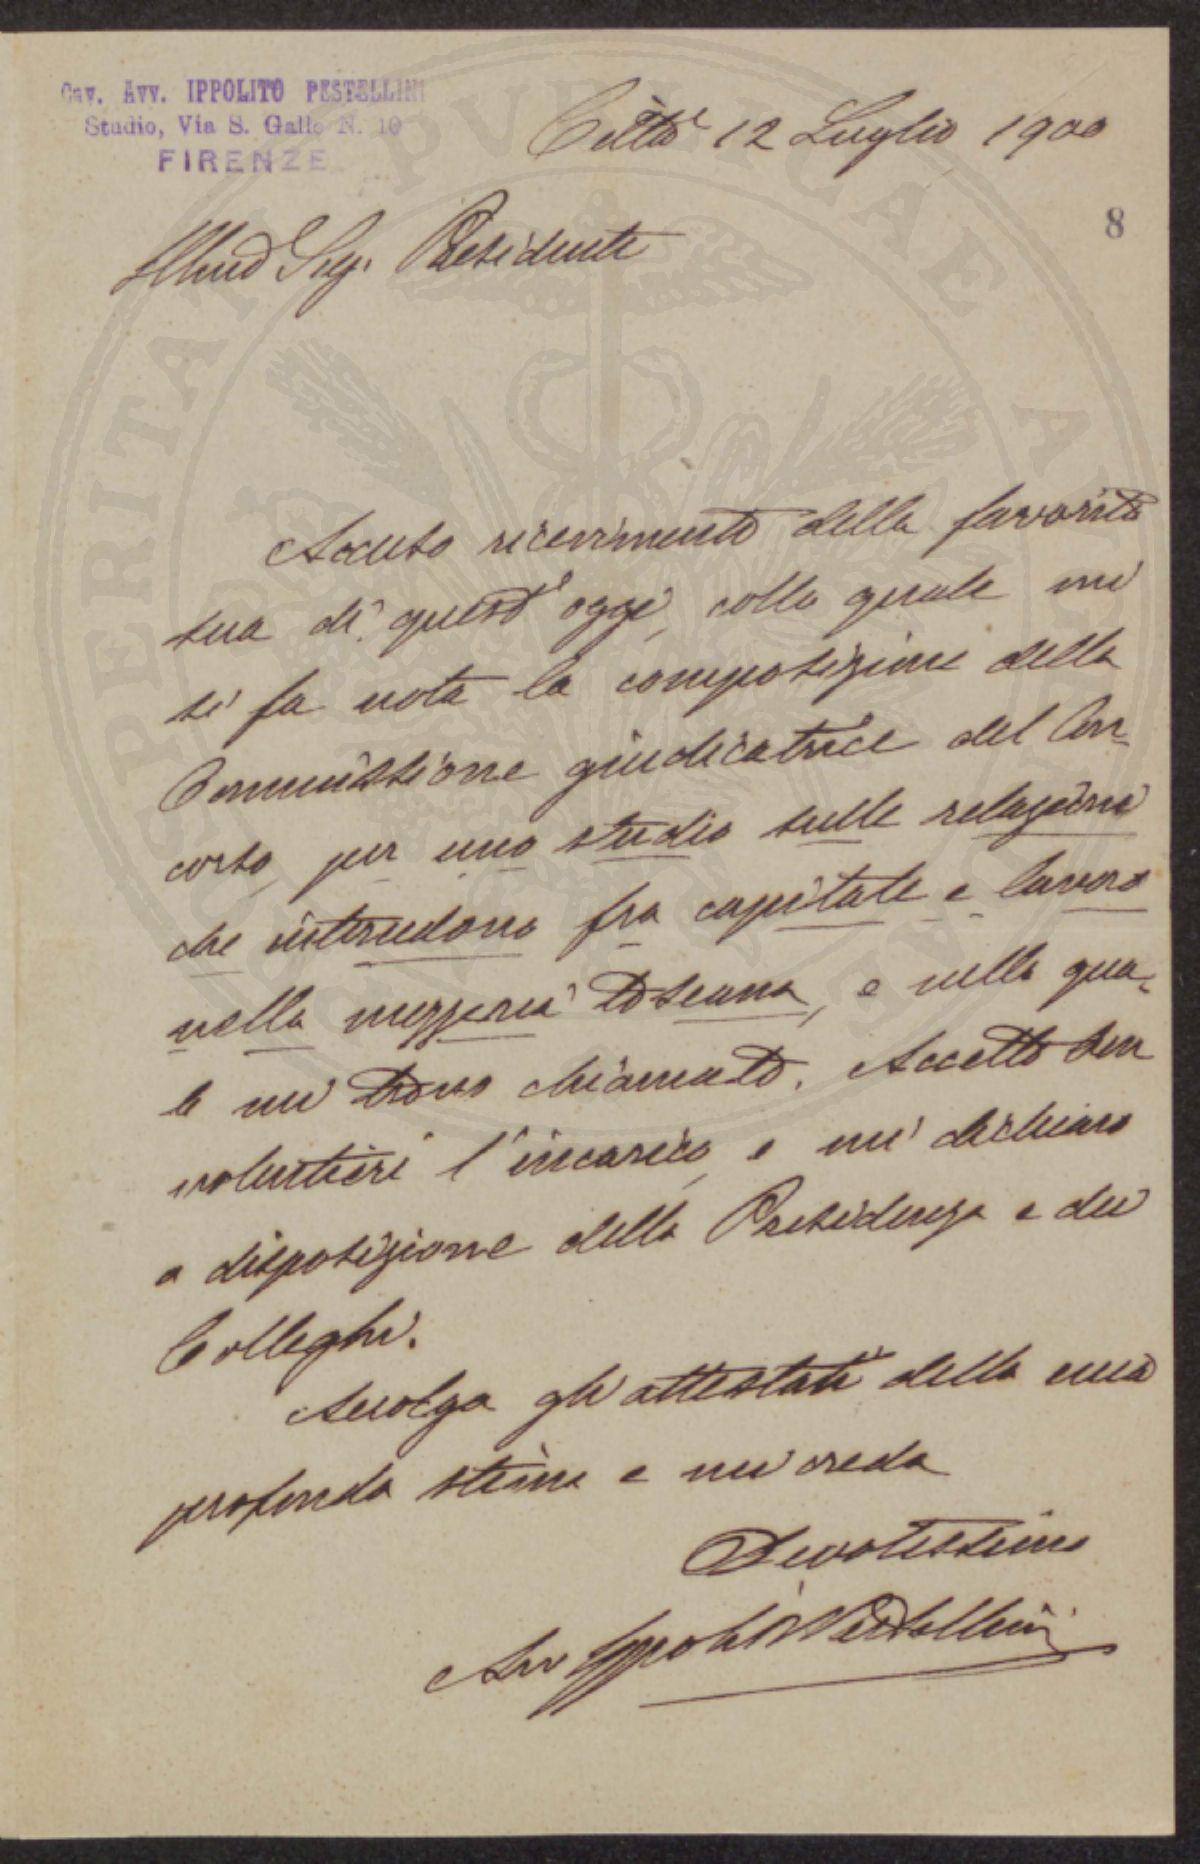 Cav. Avv. IPPOLITO PESTELLINI
Studio, Via S. Gallo N. 10
FIRENZE
Città 12 Luglio 1900
8
Illmo Sig. Presidente
Accuso ricevimento della favorita
sua di quest'oggi, colla quale mi
si fa nota la composizione della
Commissione giudicatrice del Con-
corso, per uno studio sulle relazioni
che intercedono fra capitale e lavoro
nella mezzeria toscana, e nella qua-
le mi trovo chiamato. Accetto ben
volentieri l'incarico, e mi dichiaro
a disposizione della Presidenza e dei
Colleghi.
Accolga gli attestati della mia
profonda stima e mi creda
Devotissimo
Avv Ippolito Pestellini